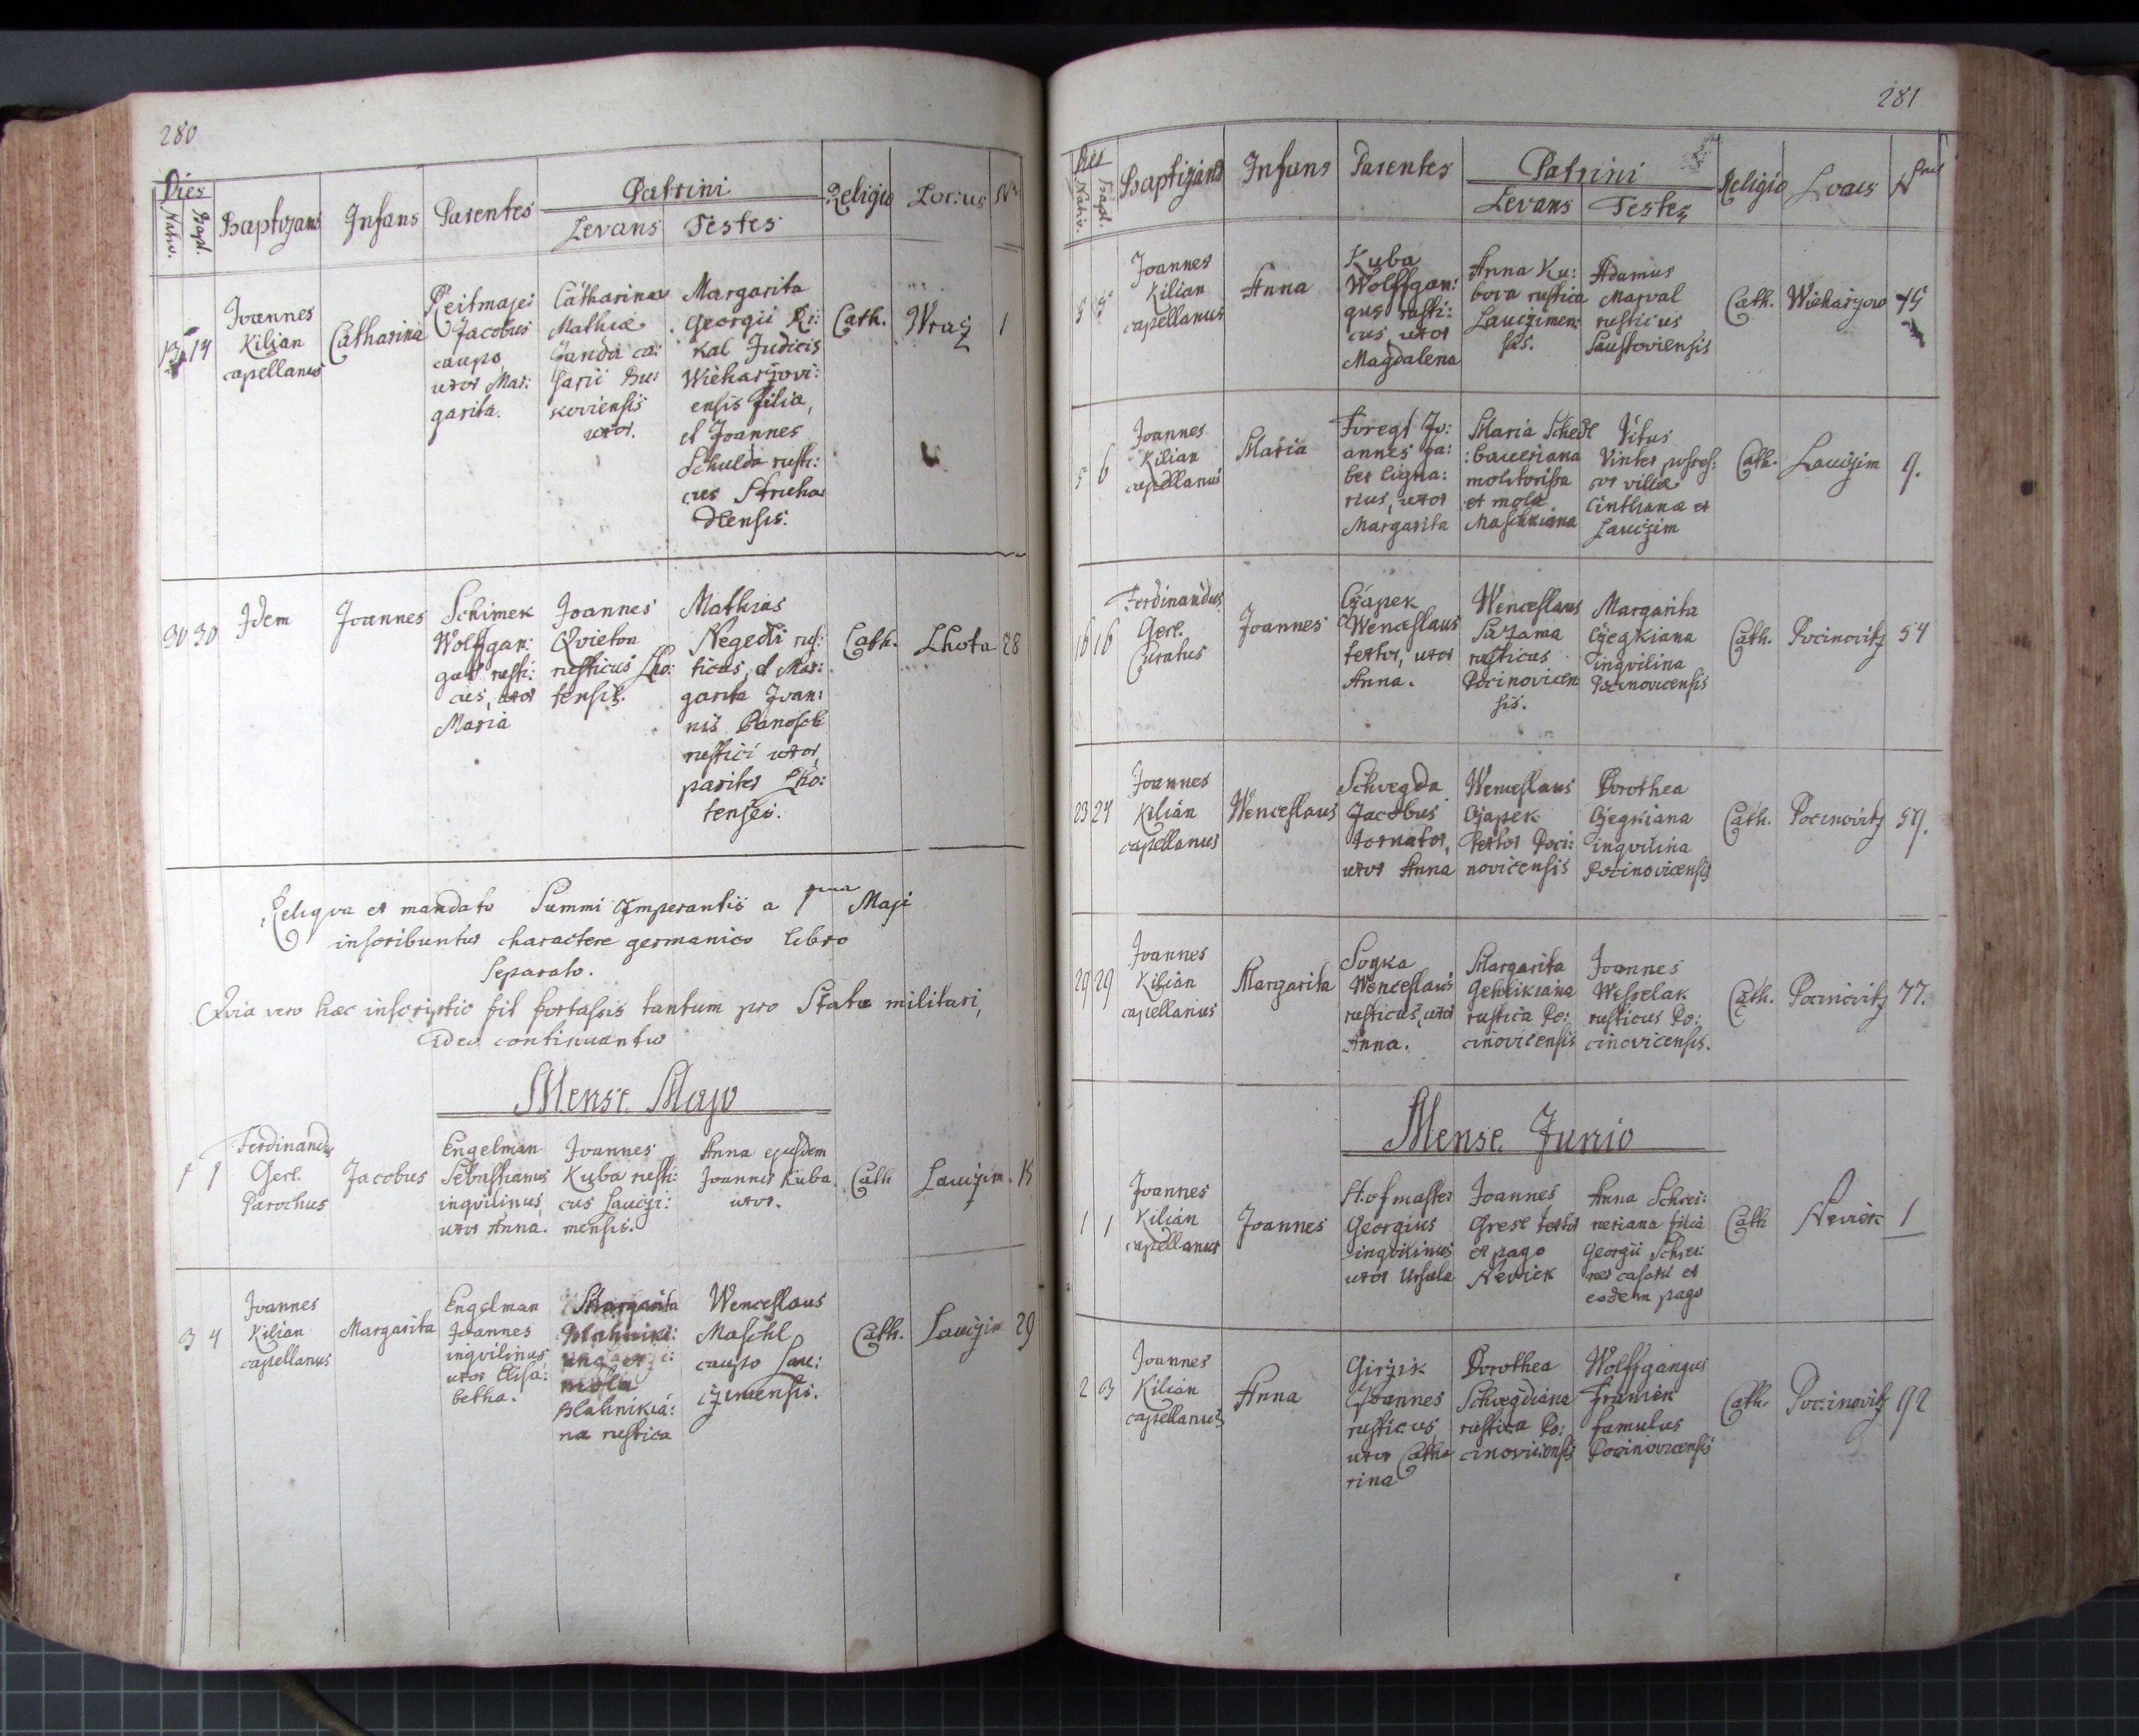 280
Dies
Nativ.
Bapt.
Baptizans
Infans
Parentes
Patrini
Levans
Testes
Religio
Locus
Nr
13 14
Joannes
Kilian
capellanus
Catharina
Reitmajer
Jacobus
caupo,
uxor Mar:
garita.
Catharina
Mathiæ
Janda ca:
sarii Bu:
koviensis
uxor.
Margarita
Georgii Ri:
kal Judicis
Wieharzovi:
ensis filia,
et Joannes
Schulda rusti:
cus
Cath.
Wraz
1
30 30
Idem
Joannes
Schimek
Wolffgan:
gus rusti:
cus, uxor
Maria
Joannes
Qvieton
rusticus Lho:
tensis.
Mathias
Negedli rus:
ticus, et Mar:
garita Joan:
nis Banosch
rustici uxor,
pariter Lho:
tenses.
Cath.
Lhota
28
Reliqva ex mandato Summi Imperantis a 1ma Maji
inscribuntur charactere germanico libro
separato.
Qvia vero hæc inscriptio fit fortassis tantum pro Statu militari,
adeo continuantur
Mense Majo
1 1
Ferdinandus
Gerl.
Parochus
Jacobus
Engelman
Sebastianus
inqvilinus,
uxor Anna.
Joannes
Kuba rusti:
cus Lauczi:
mensis.
Anna ejusdem
Joannis Kuba
uxor.
Cath
Lauczim
15
3 4
Joannes
Kilian
capellanus
Margarita
Engelman
Joannes
inqvilinus
uxor Elisa:
betha.
Margarita
Blahniki:
mola
Blahnikia:
na rustica
Wenceslaus
Maschl
caupo Lau:
czimensis.
Cath.
Lauczim
29
281
Dies
Nativ.
Bapt.
Baptizans
Infans
Parentes
Patrini
Levans
Testes
Religio
Locus
Nrus
5 5
Joannes
Kilian
capellanus
Anna
Kuba
Wolffgan:
gus rusti:
cus, uxor
Magdalena
Anna Ku:
bova rustica
Lauczimen:
sis.
Adamus
Marval
rusticus
Saustoviensis
Cath.
Wieharzow
45
5 6
Joannes
Kilian
capellanus
Maria
Foregt Jo:
annes fa:
ber ligna:
rius, uxor
Margarita
Maria Schedl
:baueriana
molitorissa
ex mola
Maschkiana
Vitus
Vinter posses:
sor villæ
Cinthianæ ex
Lauczim
Cath.
Lauczim
9.
16 16
Ferdinandus
Gerl.
Curatus
Joannes
Czapek
Wenceslaus
textor, uxor
Anna.
Wenceslaus
Sazama
rusticus
Pocinovicen
sis.
Margarita
Czegkiana
inqvilina
Pocinovicensis
Cath.
Pocinovitz
54
23 24
Joannes
Kilian
capellanus
Wenceslaus
Schvegda
Jacobus
tornator,
uxor Anna
Wenceslaus
Czapek
textor Poci:
novicensis
Dorothea
Czegkiana
inqvilina
Pocinovicensis
Cath.
Pocinovitz
59.
29 29
Joannes
Kilian
capellanus
Margarita
Sogka
Wenceslaus
rusticus, uxor
Anna.
Margarita
Gehlikiana
rustica Po:
cinovicensis
Joannes
Wesselak
rusticus Po:
cinovicensis.
Cath.
Pocinovitz
77.
Mense Junio
1 1
Joannes
Kilian
capellanus
Joannes
Hofmaster
Georgius
inqvilinus
uxor Ursula
Joannes
Gresl textor
ex pago
Neviek
Anna Schrei:
neriana filia
Georgii Schrei:
ner casarii ex
eodem pago
Cath
Neviek
1
2 3
Joannes
Kilian
capellanus
Anna
Girzik
Joannes
rusticus,
uxor Catha
rina
Dorothea
Schvegdiana
rustica Po:
cinovicensis
Wolffgangus
Traxler
famulus
Pocinovicensis
Cath.
Pocinovitz
92